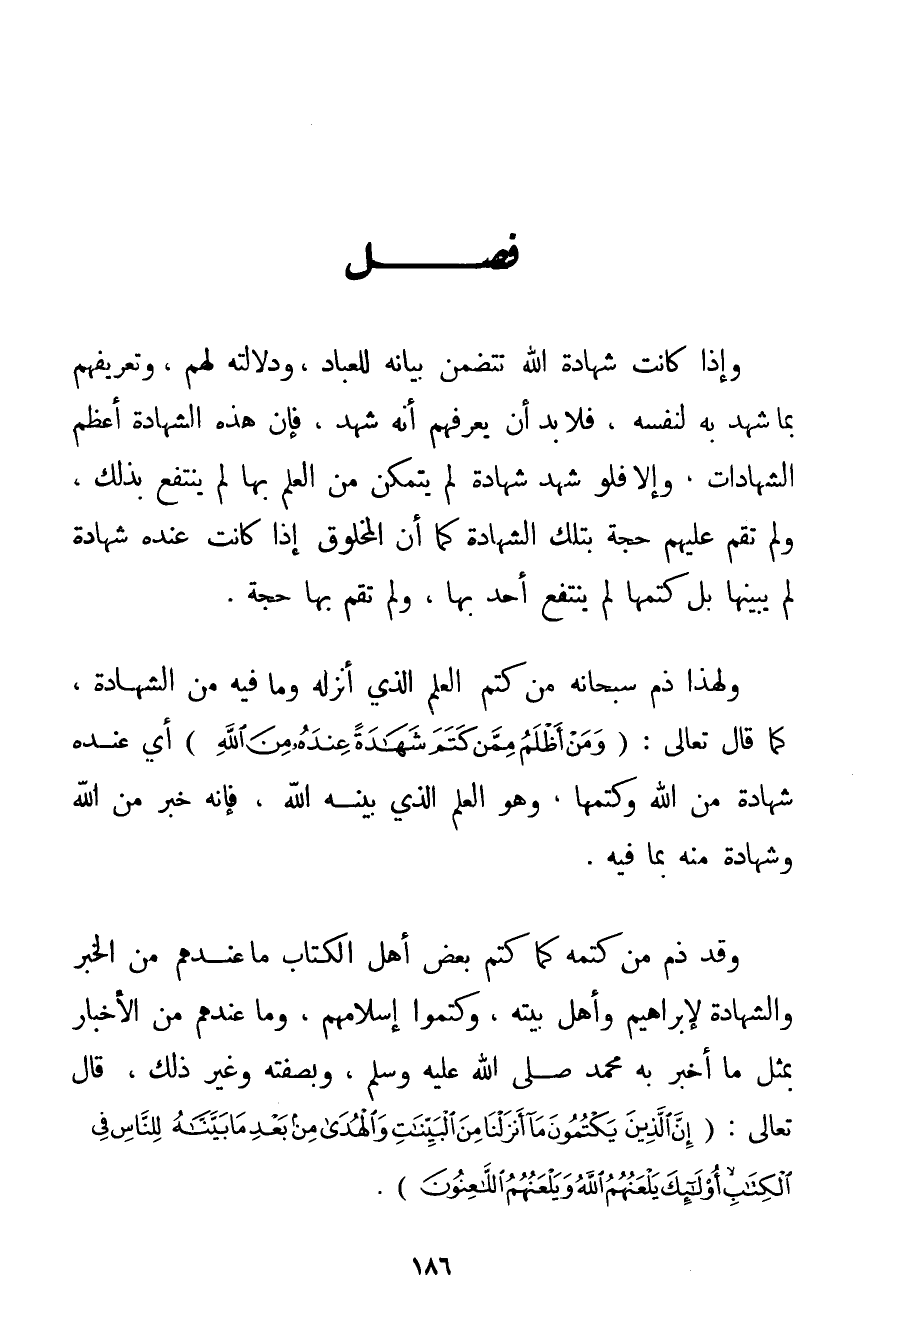 فصل
وإذا كانت شهادة الله تتضمن بيانه للعباد ، ودلالته لهم ، وتعريفهم
بما شهد به لنفسه ، فلا بد أن يعرفهم أنه شهد ، فإن هذه الشهادة أعظم
الشهادات . وإلا فلو شهد شهادة لم يتمكن من العلم بها لم ينتفع بذلك ،
ولم تقم عليهم حجة بتلك الشهادة كما أن المخلوق إذا كانت عنده شهادة
لم يبينها بل كتمها لم ينتفع أحد بها ، ولم تقم بها حجة .
ولهذا ذم سبحانه من كتم العلم الذي أنزله وما فيه من الشهادة ،
كما قال تعالى : ( وَمَنْ أَظْلَمُ مِمَّن كَتَمَ شَهَـٰدَةً عِندَهُۥ مِنَ ٱللَّهِ ) أي عنده
شهادة من الله وكتمها . وهو العلم الذي بينه الله ، فإنه خبر من الله
وشهادة منه بما فيه .
وقد ذم من كتمه كما كتم بعض أهل الكتاب ما عندهم من الخبر
والشهادة لإبراهيم وأهل بيته ، وكتموا إسلامهم ، وما عندهم من الأخبار
بمثل ما أخبر به محمد صلى الله عليه وسلم ، وبصفته وغير ذلك ، قال
تعالى : ( إِنَّ ٱلَّذِينَ يَكْتُمُونَ مَآ أَنزَلْنَا مِنَ ٱلْبَيِّنَـٰتِ وَٱلْهُدَىٰ مِنۢ بَعْدِ مَا بَيَّنَّـٰهُ لِلنَّاسِ فِى
ٱلْكِتَـٰبِ ۙ أُو۟لَـٰٓئِكَ يَلْعَنُهُمُ ٱللَّهُ وَيَلْعَنُهُمُ ٱللَّـٰعِنُونَ ) .
١٨٦